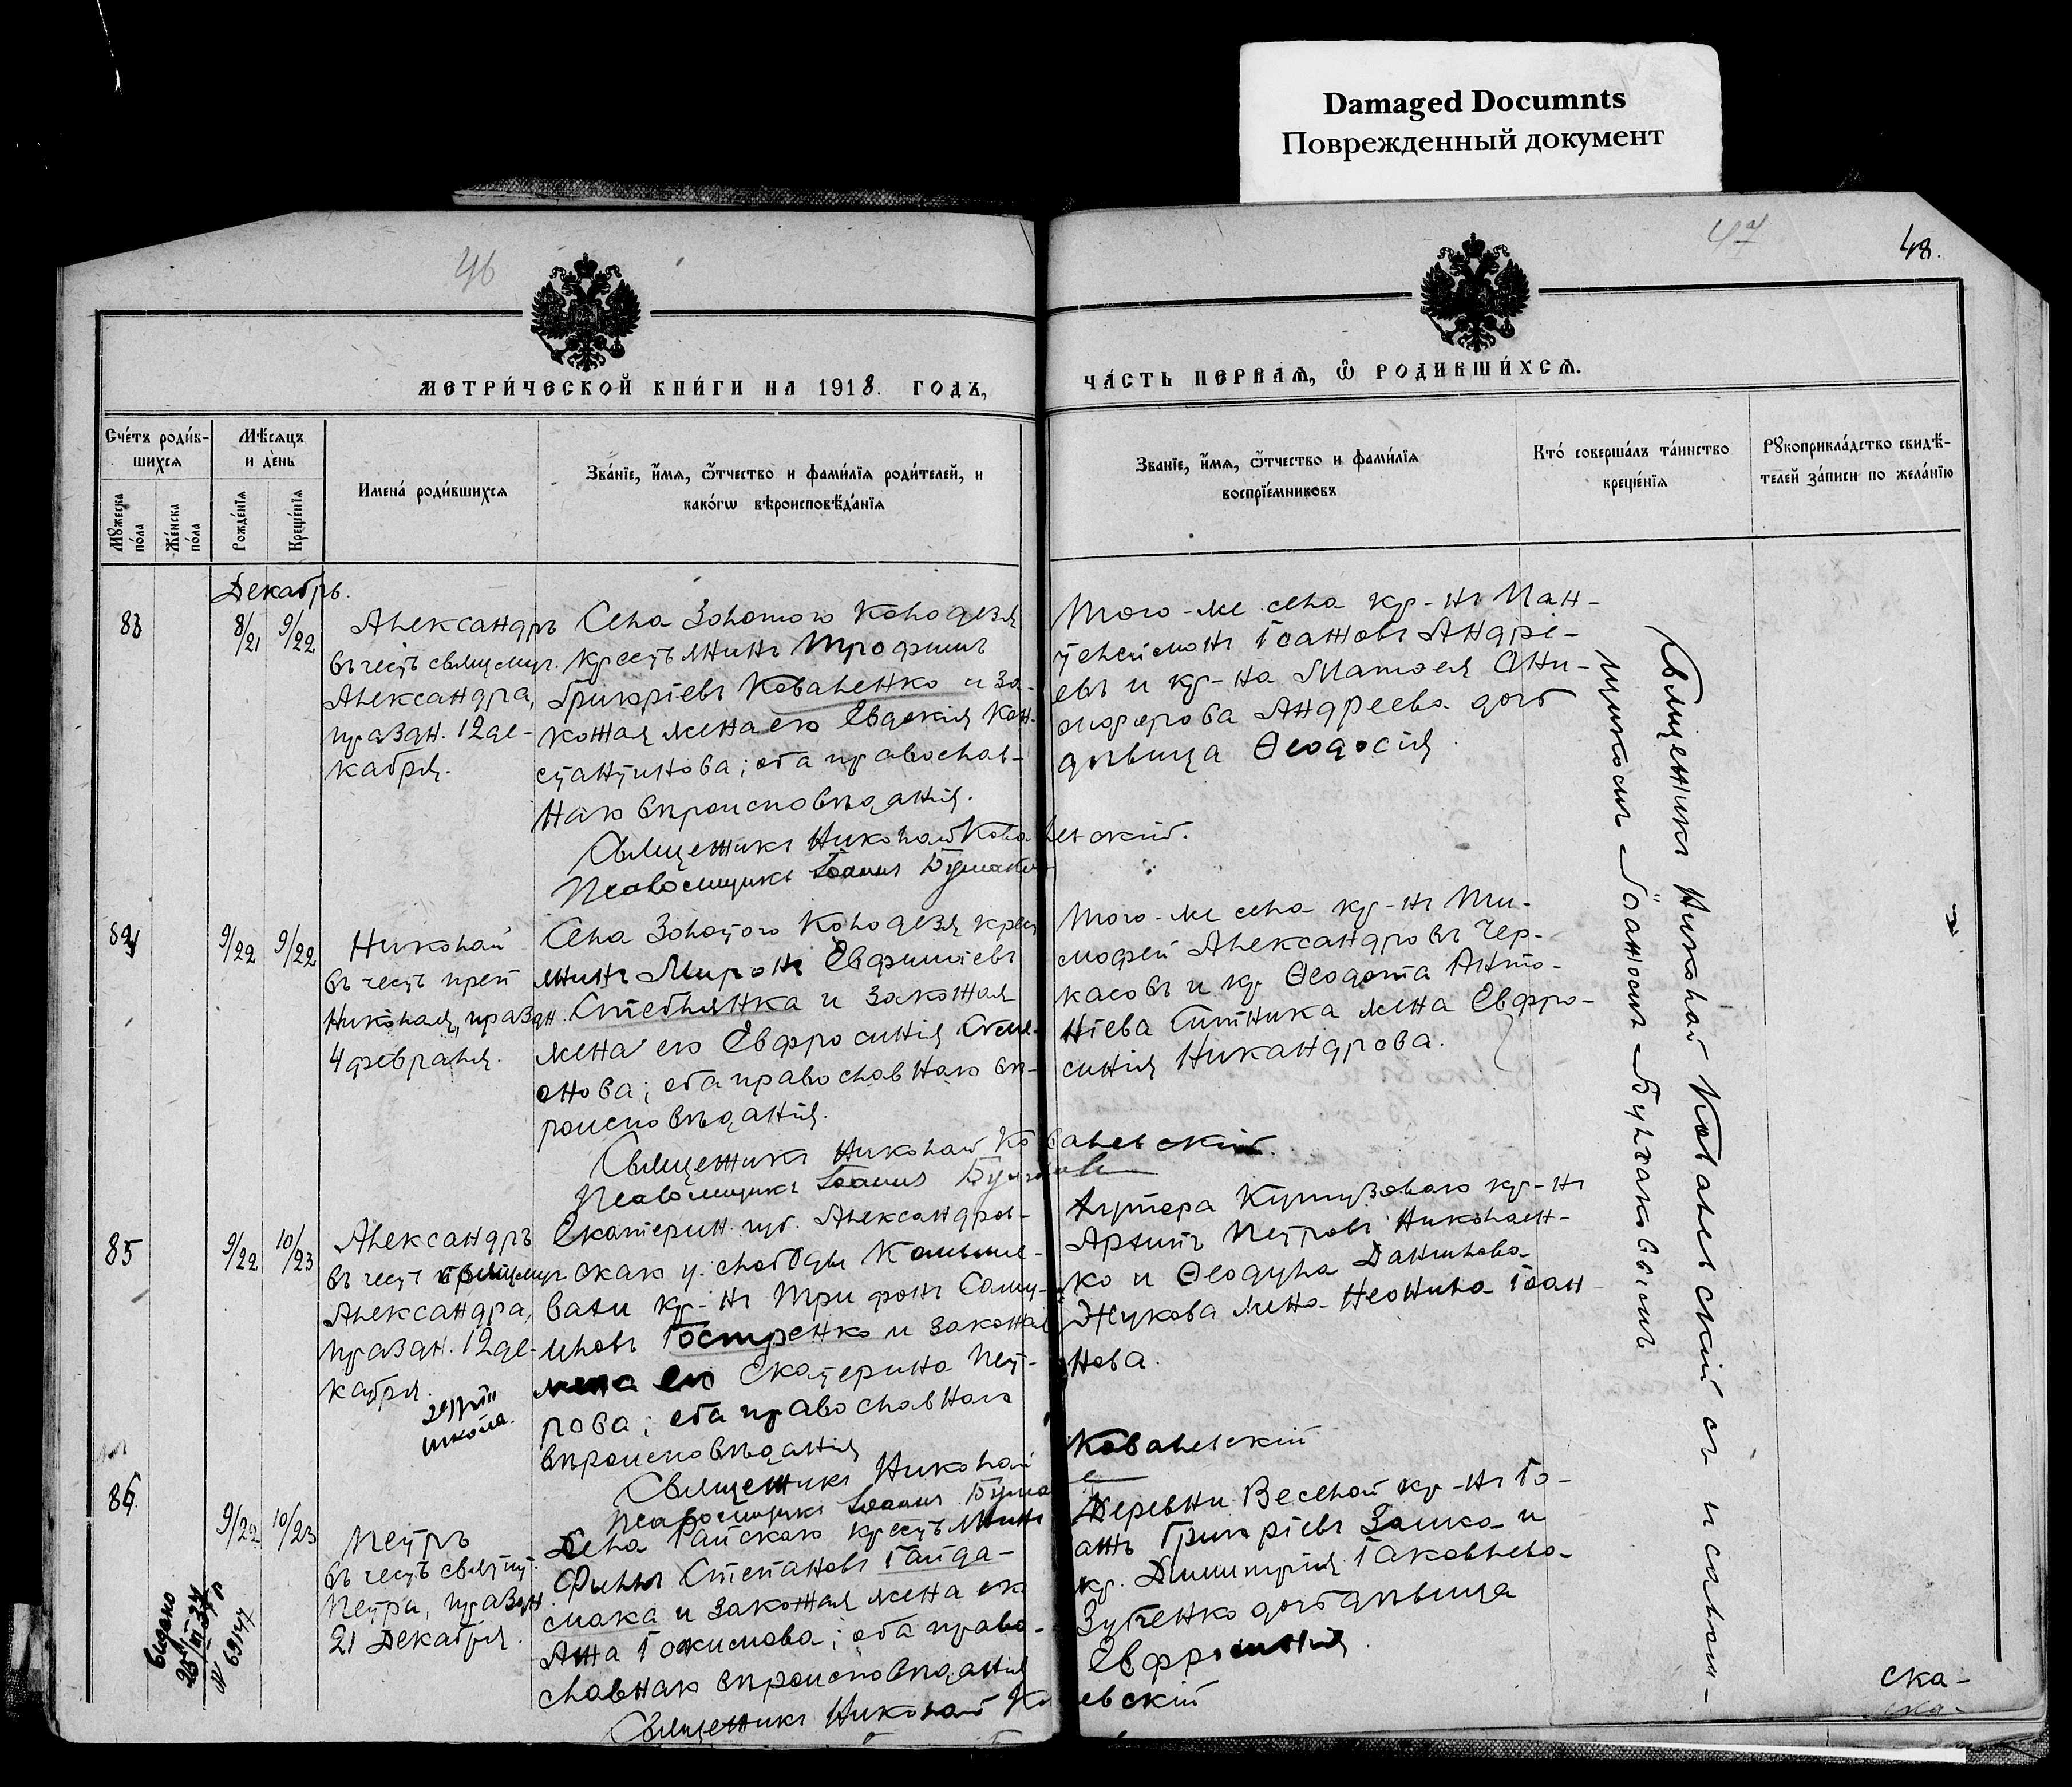 Damaged Documnts
Поврежденный документ
46
47
48.
МЕТРИ́ЧЕСКОЙ КНИ́ГИ НА 1918. ГОДЪ,
ЧА́СТЬ ПЕРВАѦ, Ѽ РОДИВШИ́ХСѦ.
Сче́тъ роди́в-
шихсѧ
Мѣ́сѧцъ
и де́нь
Мꙋ́жеска
по́ла
Же́нска
по́ла
Рожде́нїѧ
Креще́нїѧ
Имена́ роди́вшихсѧ
Зва́нїе, и́мѧ, ѻ́тчество и фами́лїѧ роди́телей, и
како́гѡ вѣроисповѣ́данїѧ
Зва́нїе, и́мѧ, ѻ́тчество и фами́лїѧ
воспрїе́мниковъ
Кто́ соверша́лъ та́инство
креще́нїѧ
Рꙋкоприкла́дство свидѣ́-
телей за́писи по жела́нїю
Декабрь.
83
8/21
9/22
Александръ
въ честь свящмуч.
Александра,
праздн. 12 де-
кабря.
Села Золотого Колодезя
крестьянинъ Трофимъ
Григоріевъ Коваленко и за-
конная жена его Евдокія Кон-
стантинова; оба православ-
наго вѣроисповѣданія.
Священникъ Николай Ковалевскій.
Псаломщикъ Іоаннъ
Того-же села кр-нъ Пан-
телеимонъ Іоанновъ Андре-
евъ и кр-на Матвея Они-
Андреева дочь
дѣвица Ѳеодосія.
84
9/22
9/22
Николай
въ честь преп
Николая, праздн.
4 февраля.
Села Золотого Колодезя крес
янинъ Миронъ Евфиміевъ
Стеблянка и законная
жена его Евфросинія Симе-
онова; оба православнаго вѣ-
роисповѣданія.
Священникъ Николай Ковалевскій.
Псаломщикъ Іоаннъ
Того-же села кр-нъ Ти-
мофей Александровъ Чер-
касовъ и кр Ѳеодота Анто-
ніева Ситника жена Евфро-
синія Никандрова.
85
9/22
10/23
Александръ
въ честь свящмуч
Александра,
праздн. 12 де-
кабря.
школа.
Екатерин. губ. Александров-
скаго у. слободы
кр-нъ Трифонъ Саму-
иловъ Гостренко и законная
жена его Екатерина Пет-
рова; оба православнаго
вѣроисповѣданія
Священникъ Николай Ковалевскій
Псаломщикъ Іоаннъ
Хутора Кутузоваго кр-нъ
Архипъ Петровъ Николаен-
ко и Ѳеодула Данилова
Жукова жена Неонила Іоан
нова.
86.
9/22
10/23
Петръ
въ честь святит.
Петра, праздн.
21 Декабря.
Видано
N 69147
Села Райскаго крестьянинъ
Филиппъ Степановъ Гайда-
мака и законная жена его
Анна Іоакимова; оба право-
славнаго вѣроисповѣданія
Священникъ Николай Ковалевскій
Деревни Веселой кр-нъ Іо-
аннъ Григоріевъ Зашка и
кр. Димитрія Іаковлева
Зубченко дочь дѣвица
Евфросинія.
Священникъ Николай Ковалевскій съ псалом-
щикомъ Іоанномъ
ска-